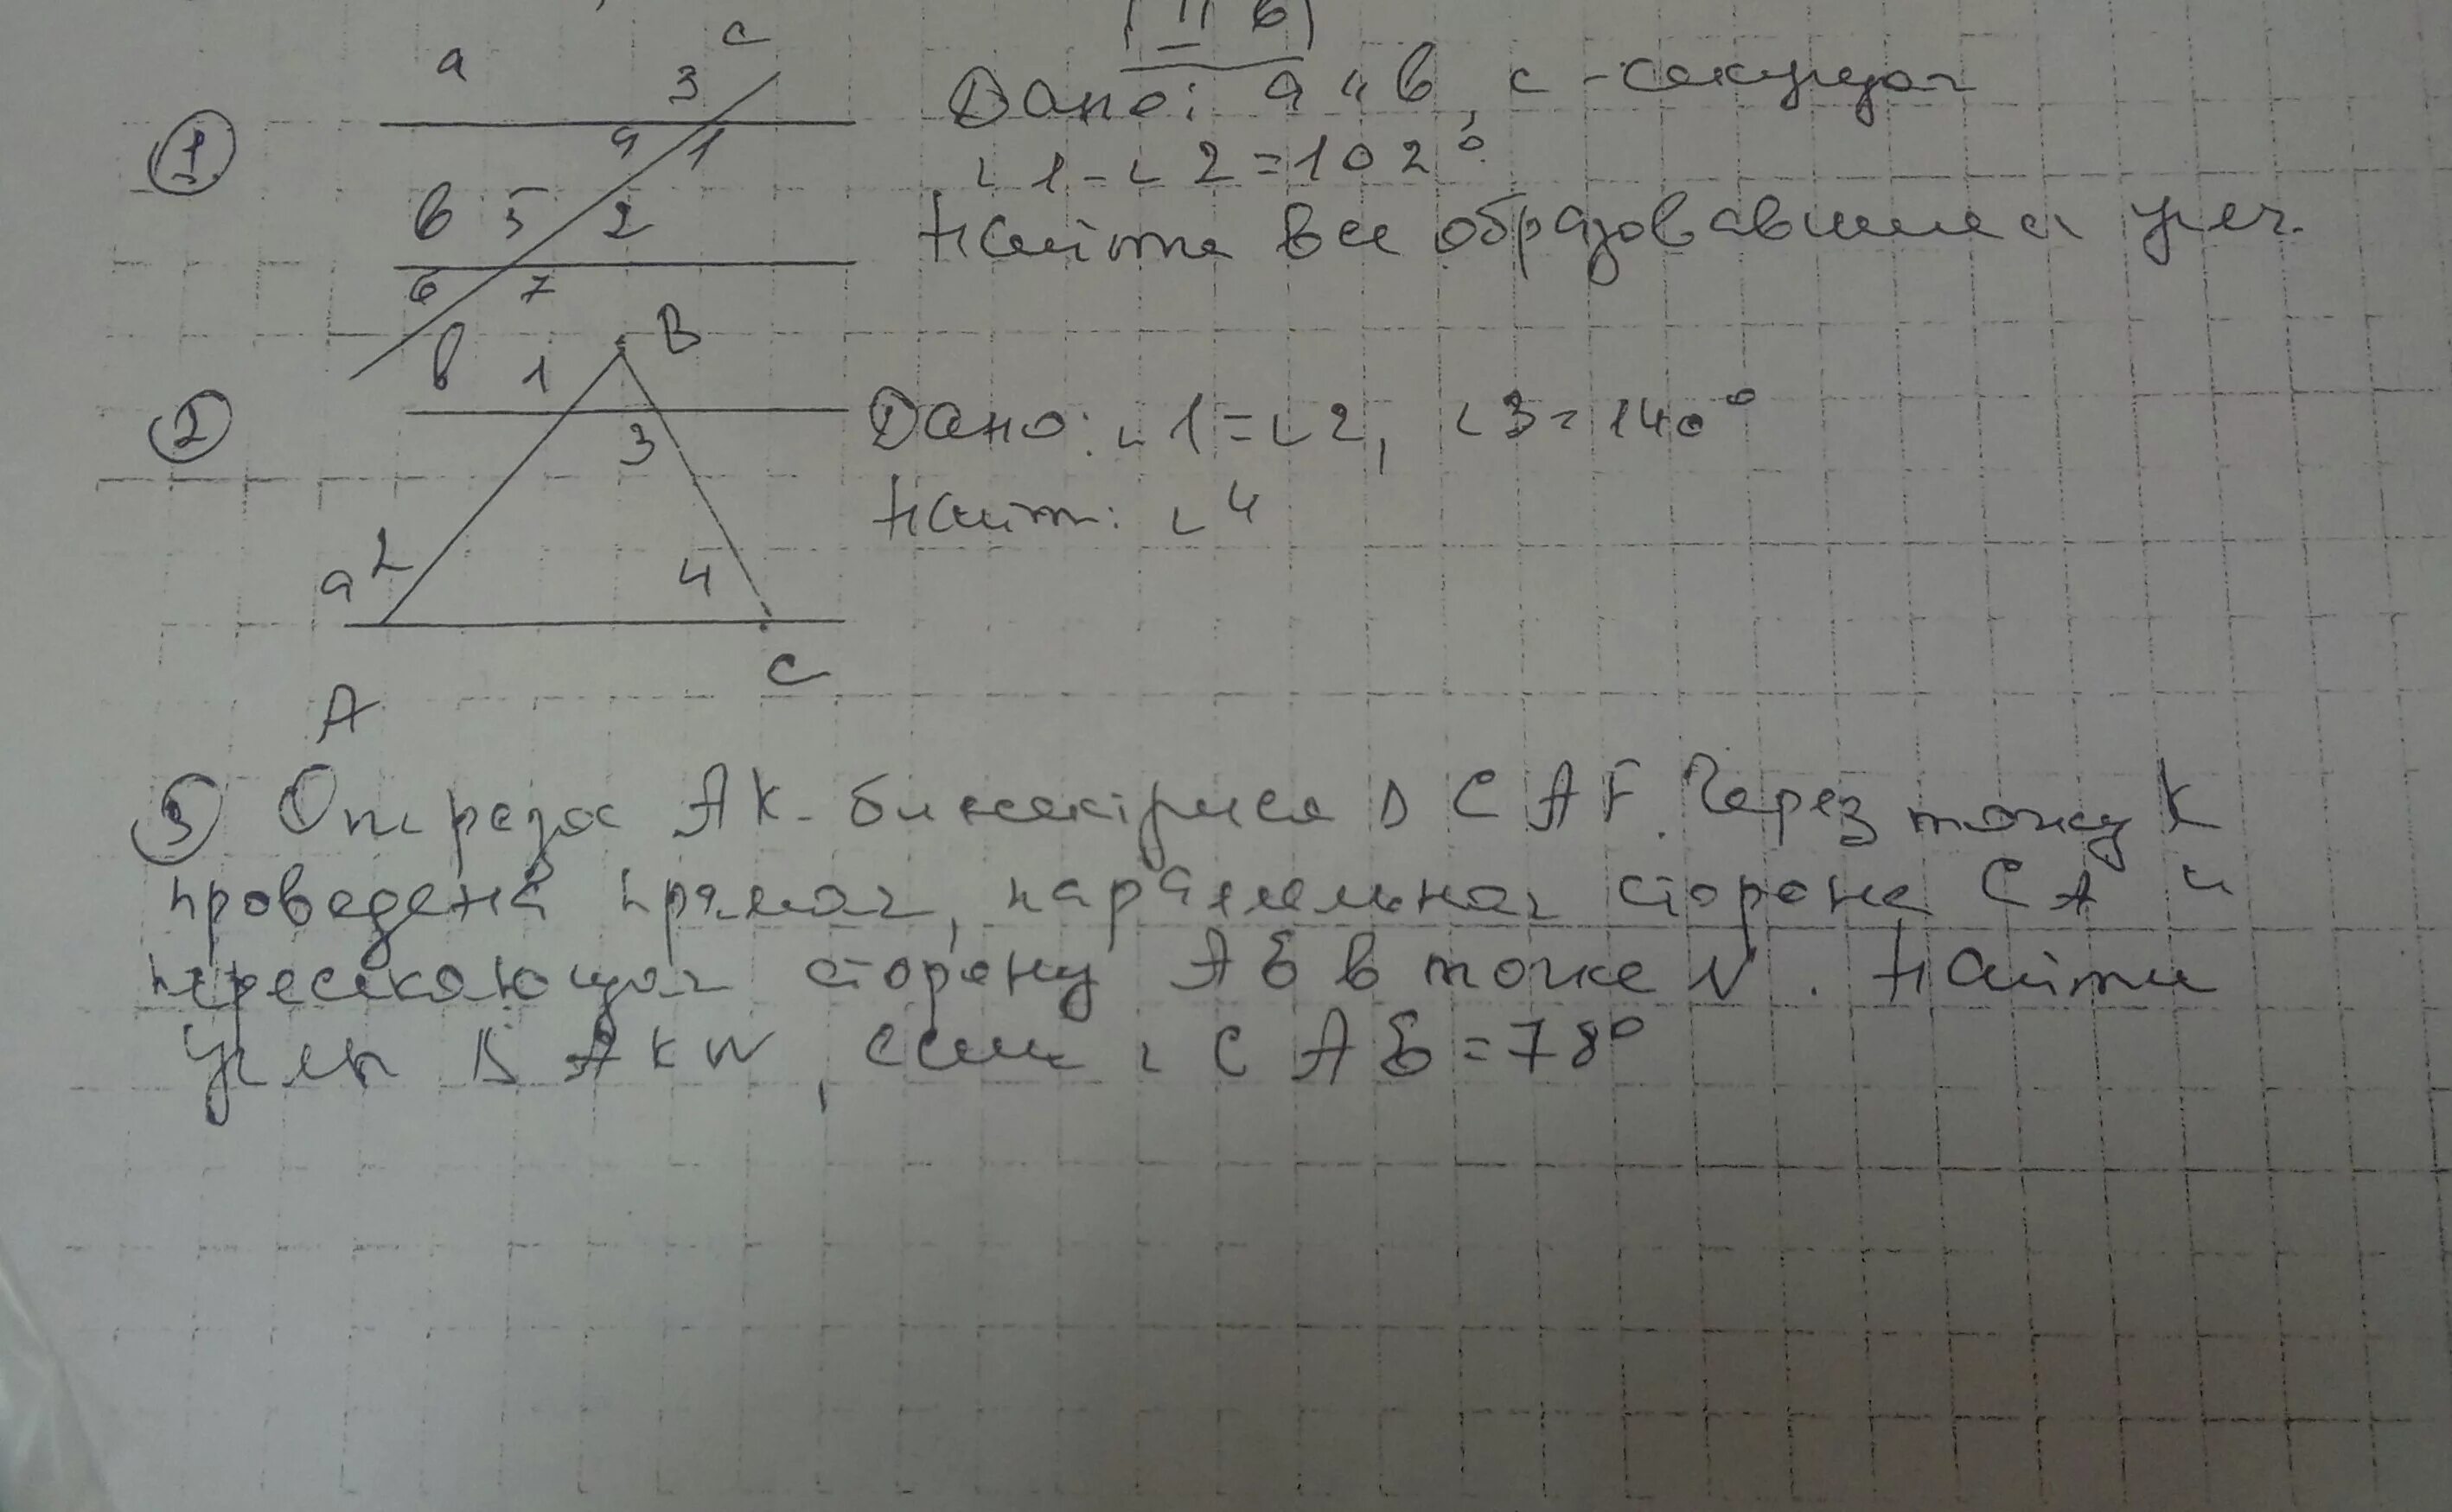 II в
a
c
3
① 4 1
Дано: a ıı b, c - секущая
∟1 - ∟2 = 102°
b 5 2
Найти все образовавшиеся угл.
6 7
② b 1 B
3
Дано: ∟1 = ∟2, ∟3 = 140°
Найти: ∟4
a 2 4
C
A
③ Отрезок AK - биссектриса Δ CAE. Через точку K
проведена прямая, параллельная стороне CA и
пересекающая сторону AE в точке N. Найти
углы Δ AKN, если ∟CAE = 78°